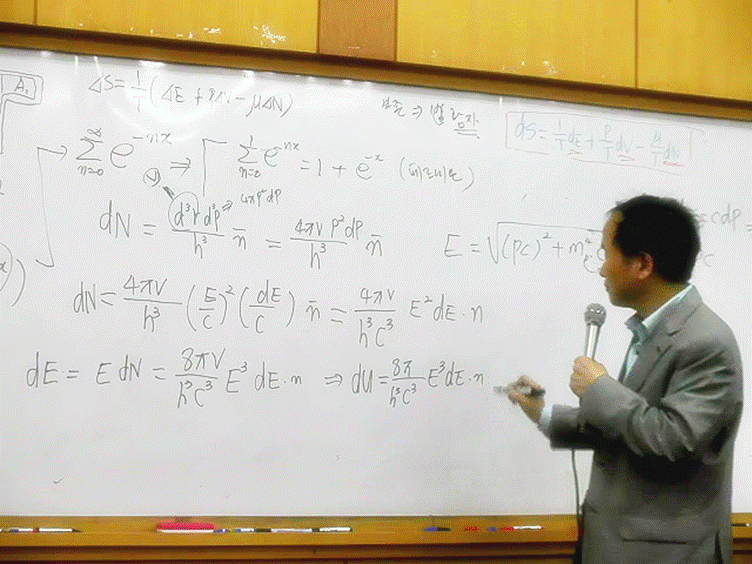 A₁
ΔS = 1/T (ΔE + PΔV − μΔN)
dS = 1/T dE + P/T dV − μ/T dN
∞ Σ n=0 e^−nx ⇒ 1 Σ n=0 e^−nx = 1 + e^−x
dN = d³r d³p / h³ n̄ = 4πV p² dp / h³ n̄
(V) ⇒ 4πp²dp
E = √(pc)² + m
= cdp =
dN = 4πV / h³ (E/c)² (dE/c) n̄ = 4πV / h³c³ E² dE · n
dE = E dN = 8πV / h³c³ E³ dE · n ⇒ dU = 8π / h³c³ E³ dE · n